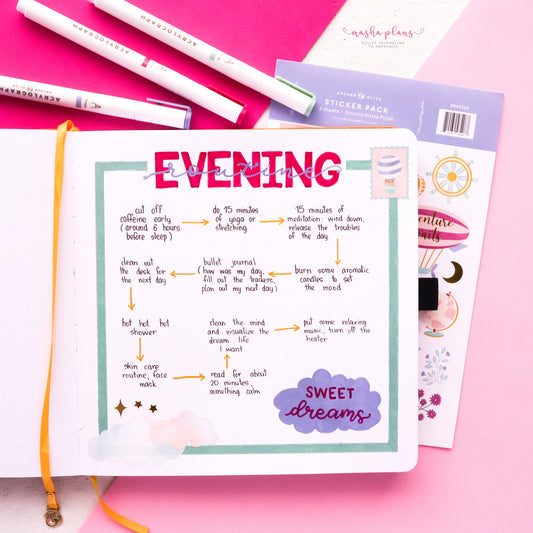 masha plans
BULLET JOURNALING
TO HAPPINESS
ACRYLOGRAPH
ACRYLOGRAPH
ACRYLOGRAPH
ARCHER & OLIVE
STICKER PACK
EVENING
routine
cut off
caffeine early
(around 6 hours
before sleep)
do 15 minutes
of yoga or
stretching
15 minutes of
meditation: wind down,
release the troubles
of the day
burn some aromatic
candles to set
the mood
bullet journal
(how was my day,
fill out the trackers,
plan out my next day)
clean out
the desk for
the next day
hot hot hot
shower
skin care
routine, face
mask
read for about
20 minutes,
something calm
clean the mind
and visualize the
dream life
I want
put some relaxing
music, turn off the
heater
SWEET
dreams